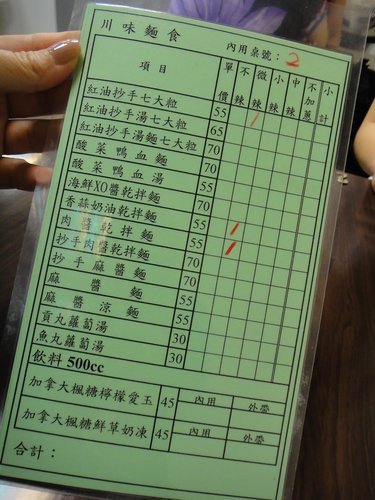 川味麵食 內用桌號：2
項目 單價 不辣 微辣 小辣 中辣 不加蔥 小計
紅油抄手七大粒 55
紅油抄手湯七大粒 65
紅油抄手湯麵七大粒 70
酸菜鴨血麵 70
酸菜鴨血湯 55
海鮮XO醬乾拌麵 70
香蒜奶油乾拌麵
肉醬乾拌麵 55
抄手肉醬乾拌麵 70
抄手麻醬麵 70
麻醬麵 55
麻醬涼麵 55
貢丸蘿蔔湯 30
魚丸蘿蔔湯 30
飲料 500cc
加拿大楓糖檸檬愛玉 45 內用 外帶
加拿大楓糖鮮草奶凍 45 內用 外帶
合計：